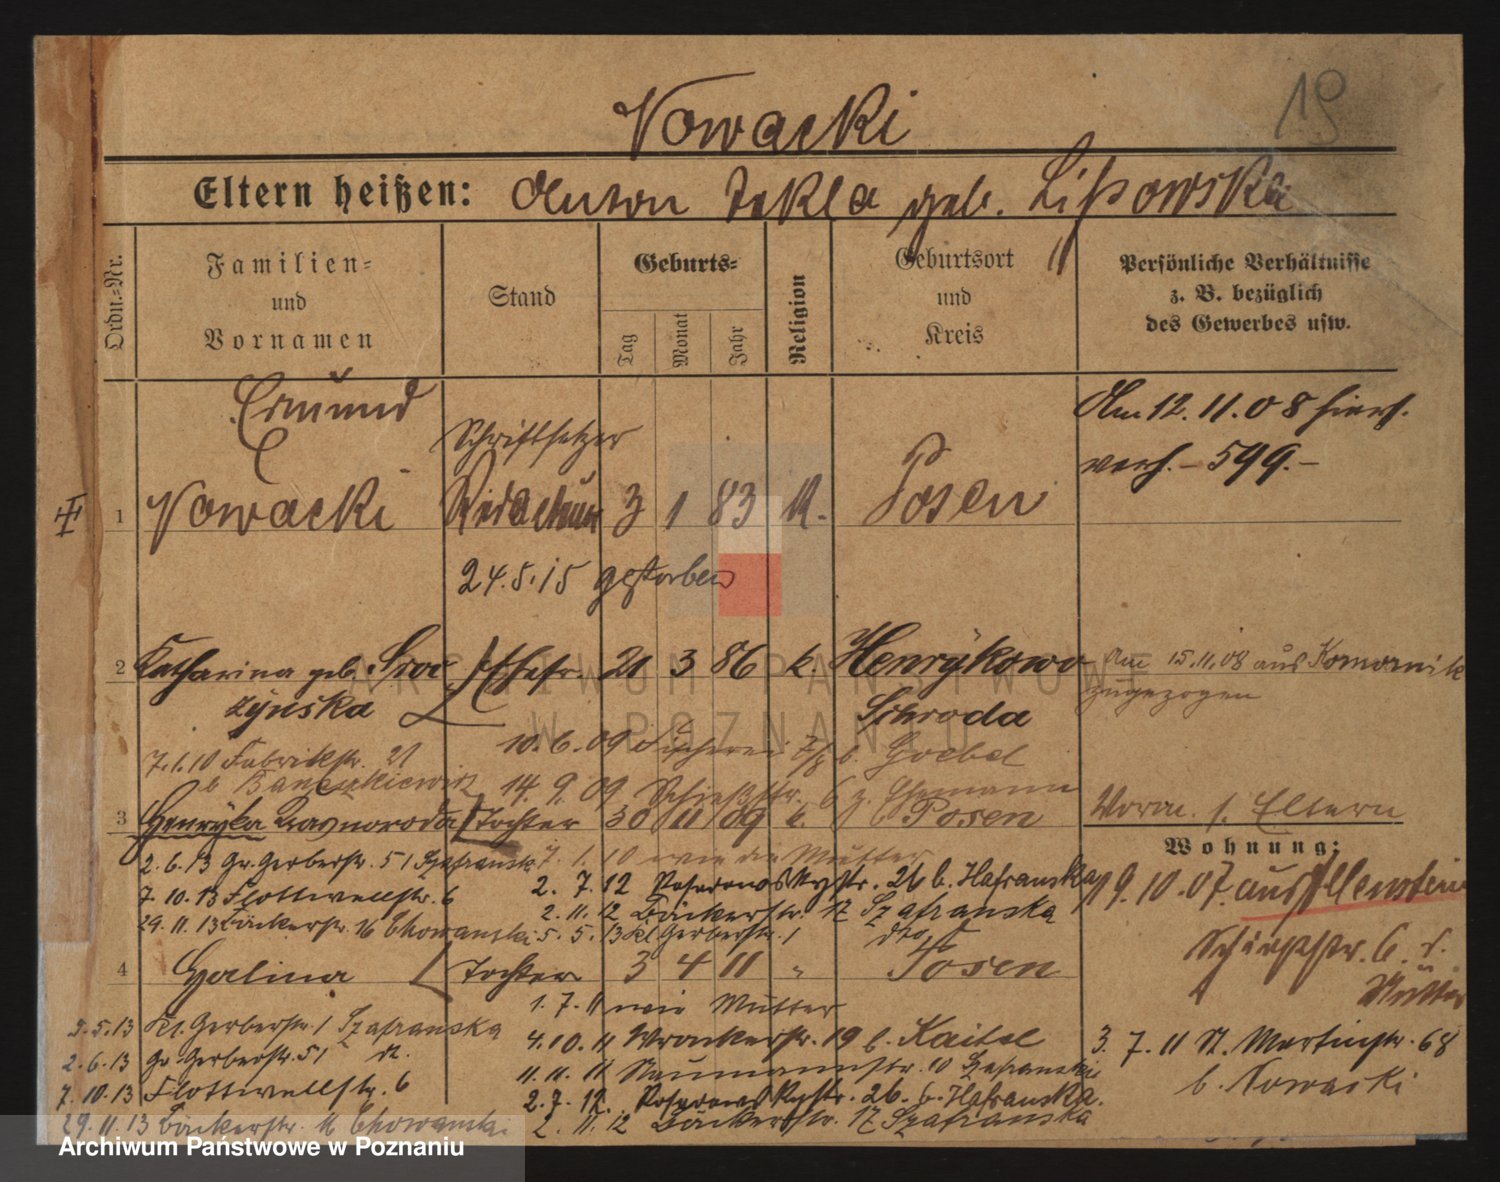 19
Nowacki
Eltern heißen: Anton Tekla geb. Lissowska
Ordn.-Nr.
Familien-
und
Vornamen
Stand
Geburts-
Tag
Monat
Jahr
Religion
Geburtsort
und
Kreis
Persönliche Verhältnisse
z. B. bezüglich
des Gewerbes usw.
Edmund
Schriftsetzer
Am 12. 11. 08 hier
verh. – 599. –
1 Nowacki 3 1 83 k. Posen
24.5.15 gestorben
2 Katharina geb. Sroc Ehefr. 21 3 86 k Henrykowo Am 15.11.08 aus Komornik
zyńska Schroda zugezogen
10.6.09 Fischerei b. Goebel
7.1.10 Fabrikstr. 21
b Banaszkiewicz 14. 9. 09 Schießstr. 6 z. Ehemann
3 Henryka Tochter 30 11 09 k. Posen
Vorm. s. Eltern
Wohnung:
7. 1. 10 wie die Mutter
2. 6. 13 Gr. Gerberstr. 51 Szafranska
2. 7. 12 26 b. Hafranska
19. 10. 07. aus Allenstein
7. 10. 13 Flottwellstr. 6
2. 11. 12 Bäckerstr. 17 Szafranska
29. 11. 13 Bäckerstr. 16 Chowanski 5. 5. 13 Kl Gerberstr. 1 dto
Schießstr. 6. b.
Mutter
4 Halina Tochter 3 4 11 " Posen
1. 7. 11 wie Mutter
5. 5. 13 Kl. Gerberstr. 1 Szafranska
4. 10. 11 Wronkerstr. 19 b. Kaitel
3. 7. 11 St. Martinstr. 68
b. Nowacki
2. 6. 13 Gr. Gerberstr. 51
11. 11. 11 Naumannstr. 10 Szafranski
7. 10. 13 Flottwellstr. 6
2. 7. 12. 26. b. Hafranska.
29. 11. 13 Bäckerstr. 16 Chowanski
2. 11. 12 Bäckerstr. 17 Szafranska
ARCHIWUM PAŃSTWOWE
W POZNANIU
Archiwum Państwowe w Poznaniu